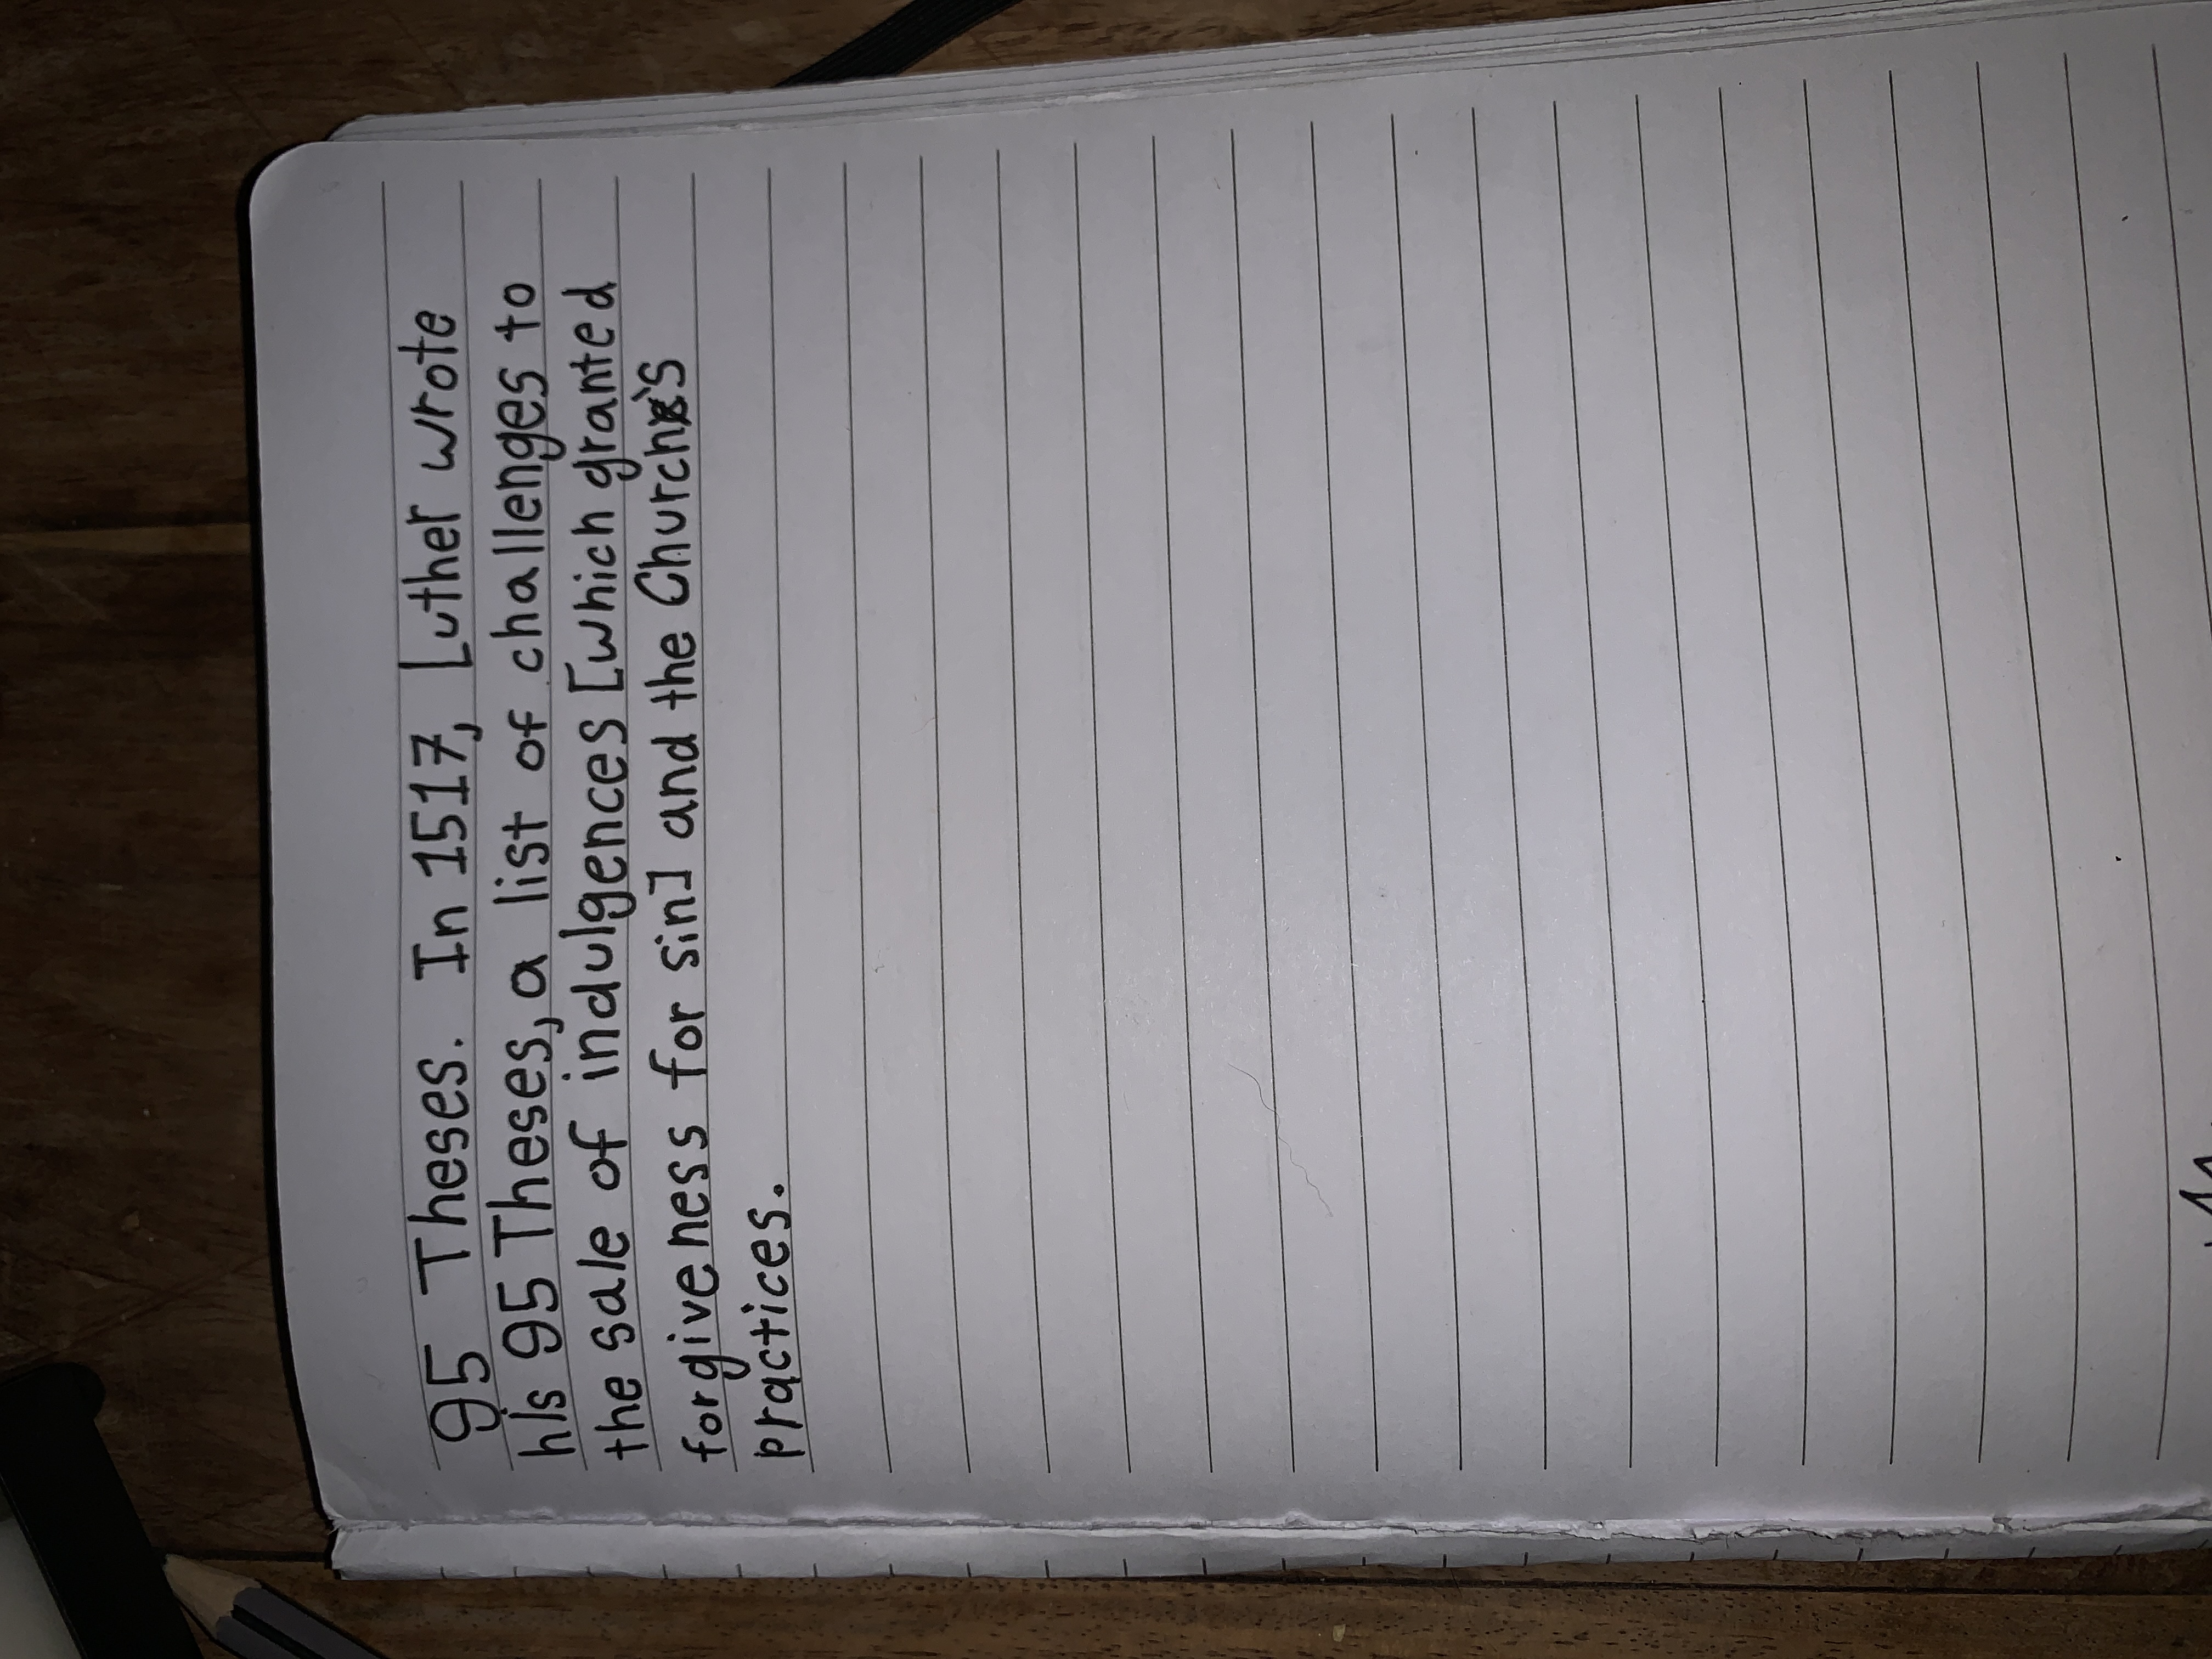 95 Theses. In 1517, Luther wrote
his 95 Theses, a list of challenges to
the sale of indulgences [which granted
forgiveness for sin] and the Church's
practices.